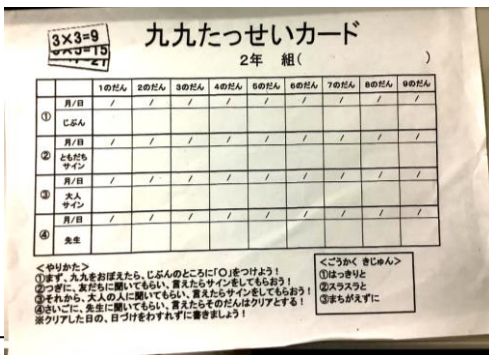 3×3=9
3×3=15
九九たっせいカード
2年 組( )
1のだん 2のだん 3のだん 4のだん 5のだん 6のだん 7のだん 8のだん 9のだん
月/日 / / / / / / / / /
① じぶん
月/日 / / / / / / / / /
② ともだち
サイン
月/日 / / / / / / / / /
③ 大人
サイン
月/日 / / / / / / / / /
④ 先生
<やりかた>
①まず、九九をおぼえたら、じぶんのところに「○」をつけよう!
②つぎに、友だちに聞いてもらい、言えたらサインをしてもらおう!
③それから、大人の人に聞いてもらい、言えたらサインをしてもらおう!
④さいごに、先生に聞いてもらい、言えたらそのだんはクリアとする!
※クリアした日の、日づけをわすれずに書きましょう!
<ごうかく きじゅん>
①はっきりと
②スラスラと
③まちがえずに